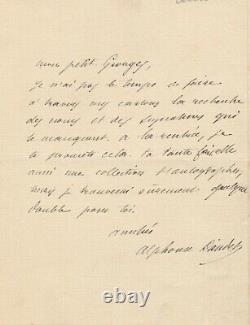 mon petit Georges,
je n'ai pas le temps de faire
à travers mes cartons la recherche
des noms et des signatures qui
te manquent. à la rentrée, je
te promets cela. ta tante
aussi une collection d'autographes,
mais j' trouverai sûrement quelque
double pour toi.
amitiés
Alphonse Daudet
© 123